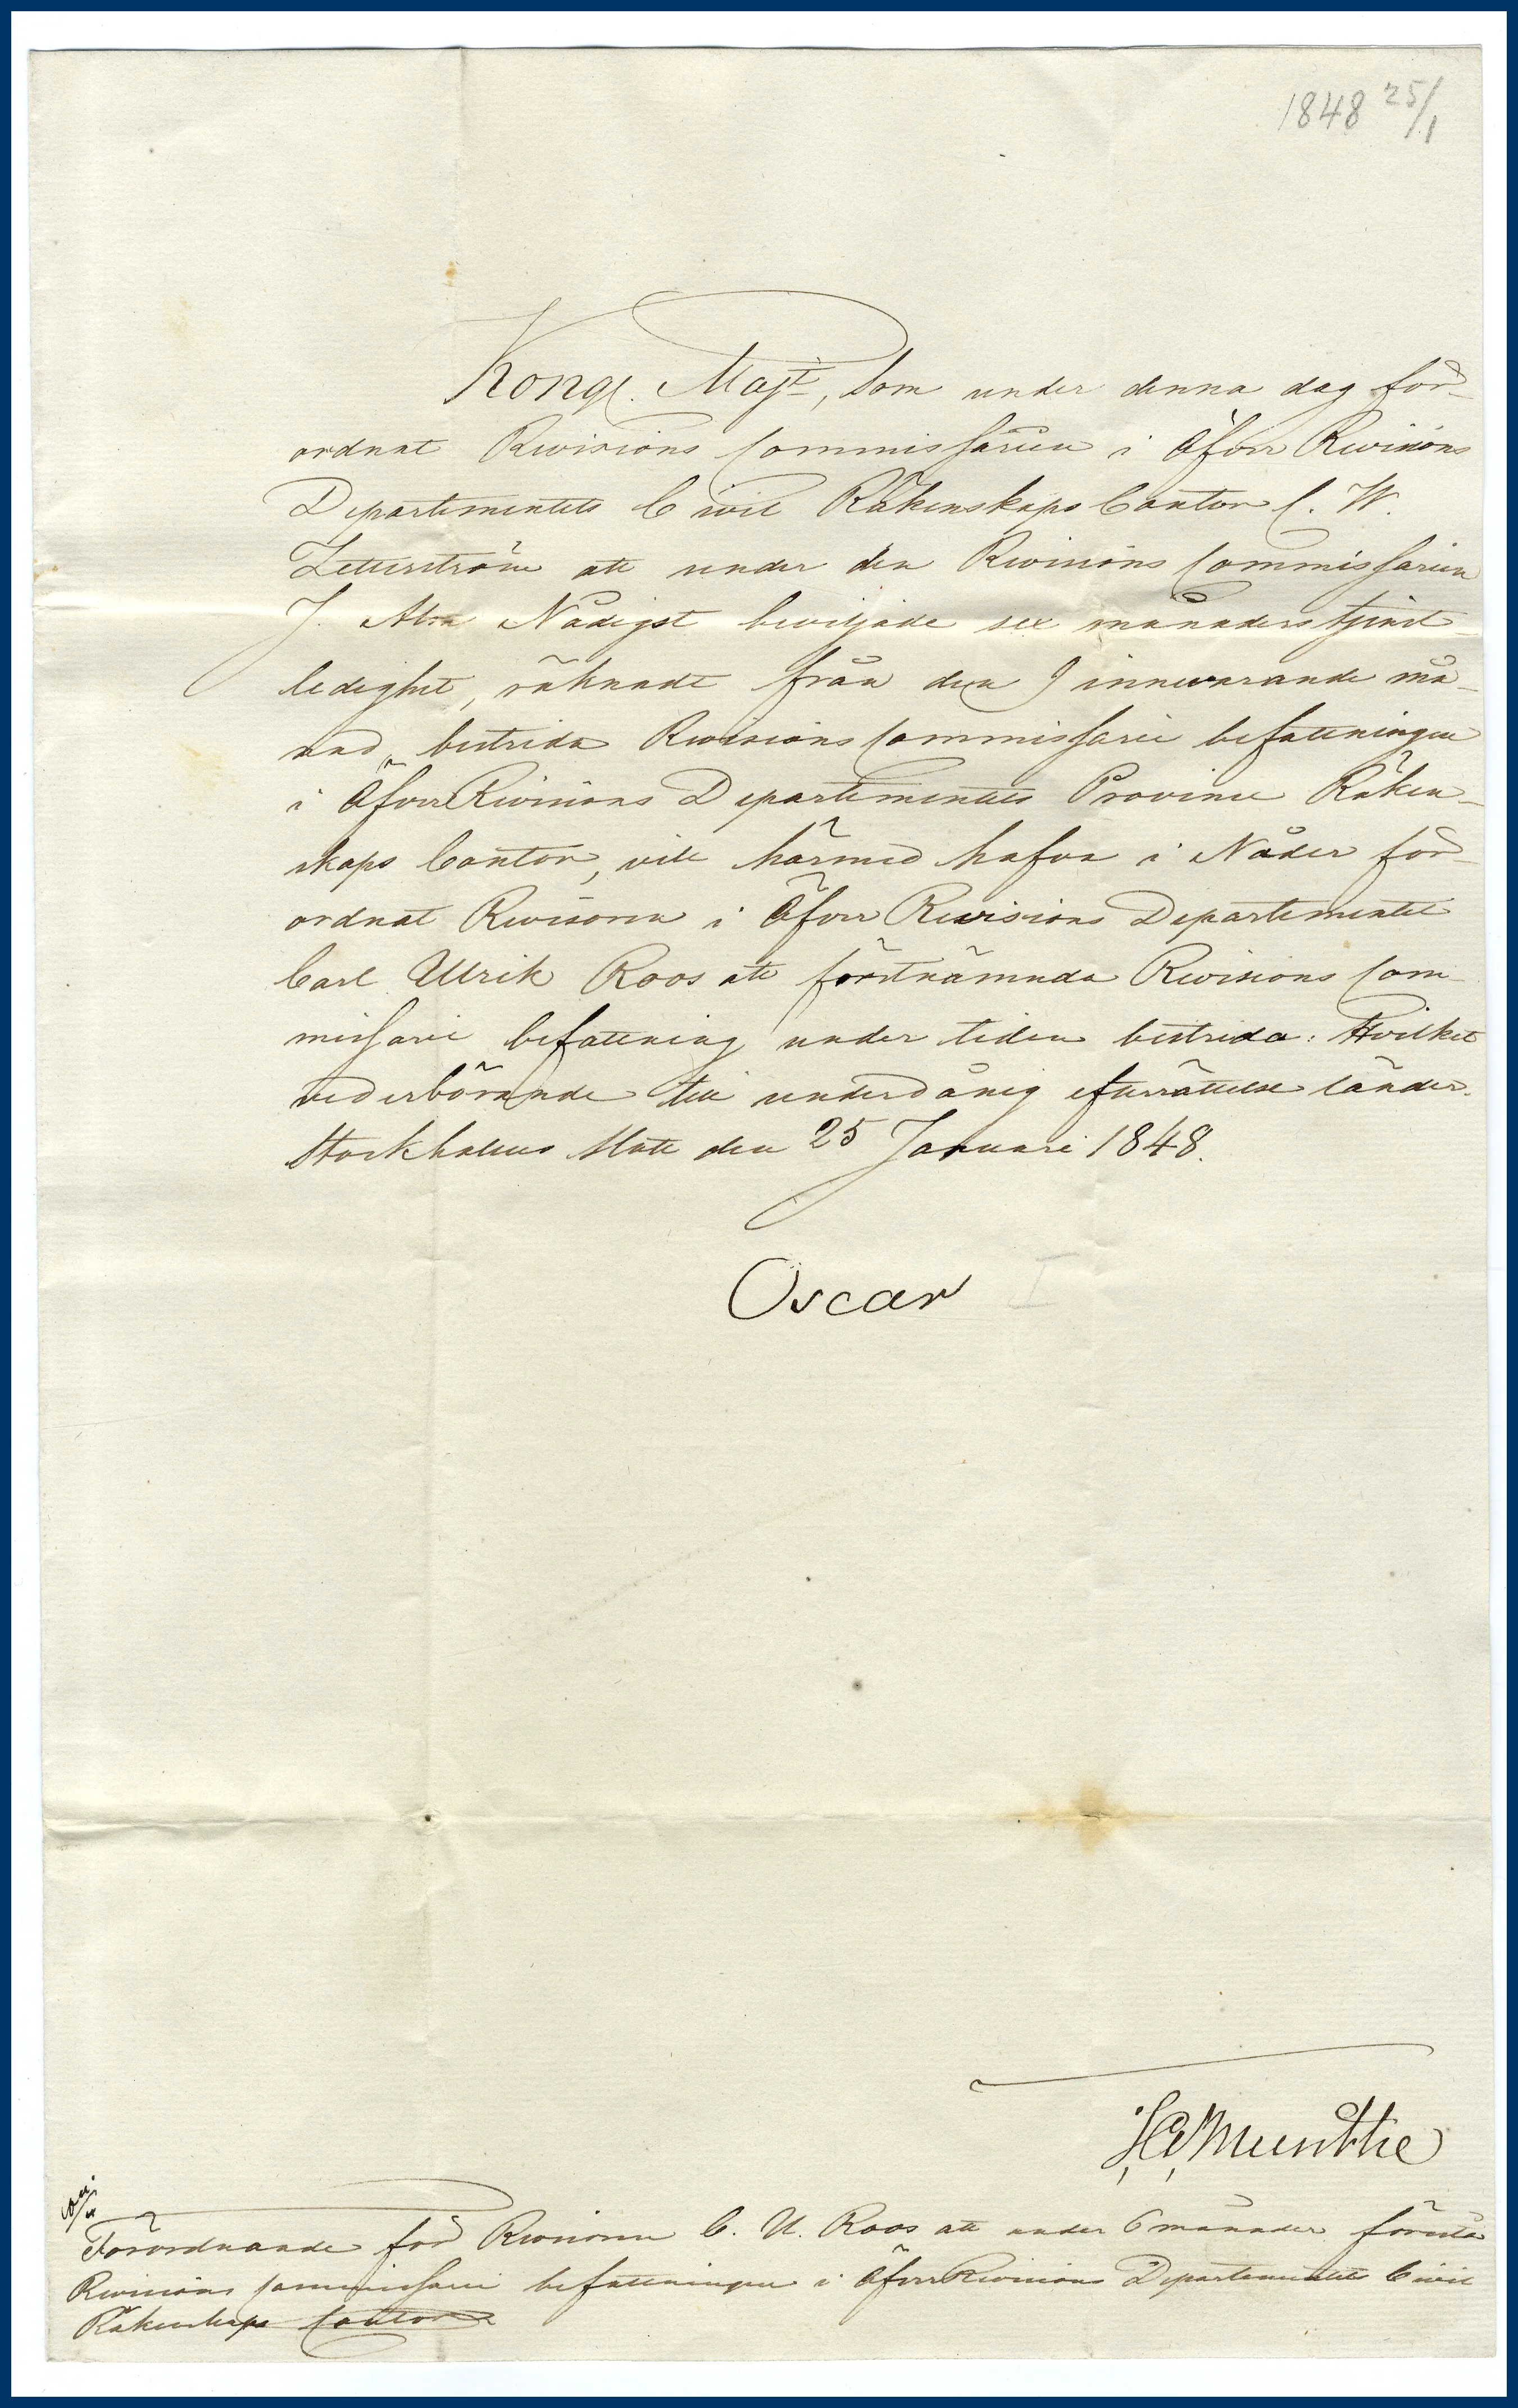 1848 25/1
Kongl. Majt, som under denna dag för-
ordnat Revisions Commissarien i Öfver Revisions
Departementets Civil Räkenskaps Contor C. W.
Zetterström att under den Revisions Commissarien
J. Alm Nådigst beviljade sex månaders tjenst-
ledighet, räknadt från den 9 innevarande må-
nad, bestrida Revisions Commissarie befattningen
i Öfver Revisions Departementets Province Räken-
skaps Contor, vill härmed hafva i Nåder för-
ordnat Revisorn i Öfver Revisions Departementet
Carl Ulrik Roos att förstnämnda Revisions Com-
missarie befattning under tiden bestrida: Hvilket
vederbörande till underdånig efterrättelse länder.
Stockholms Slott den 25 Januari 1848.
Oscar I
Munthe
Förordnande för Revisorn C. U. Roos att under 6 månader förestå
Revisions Commissarie befattningen i Öfver Revisions Departementets Civil
Räkenskaps Contor